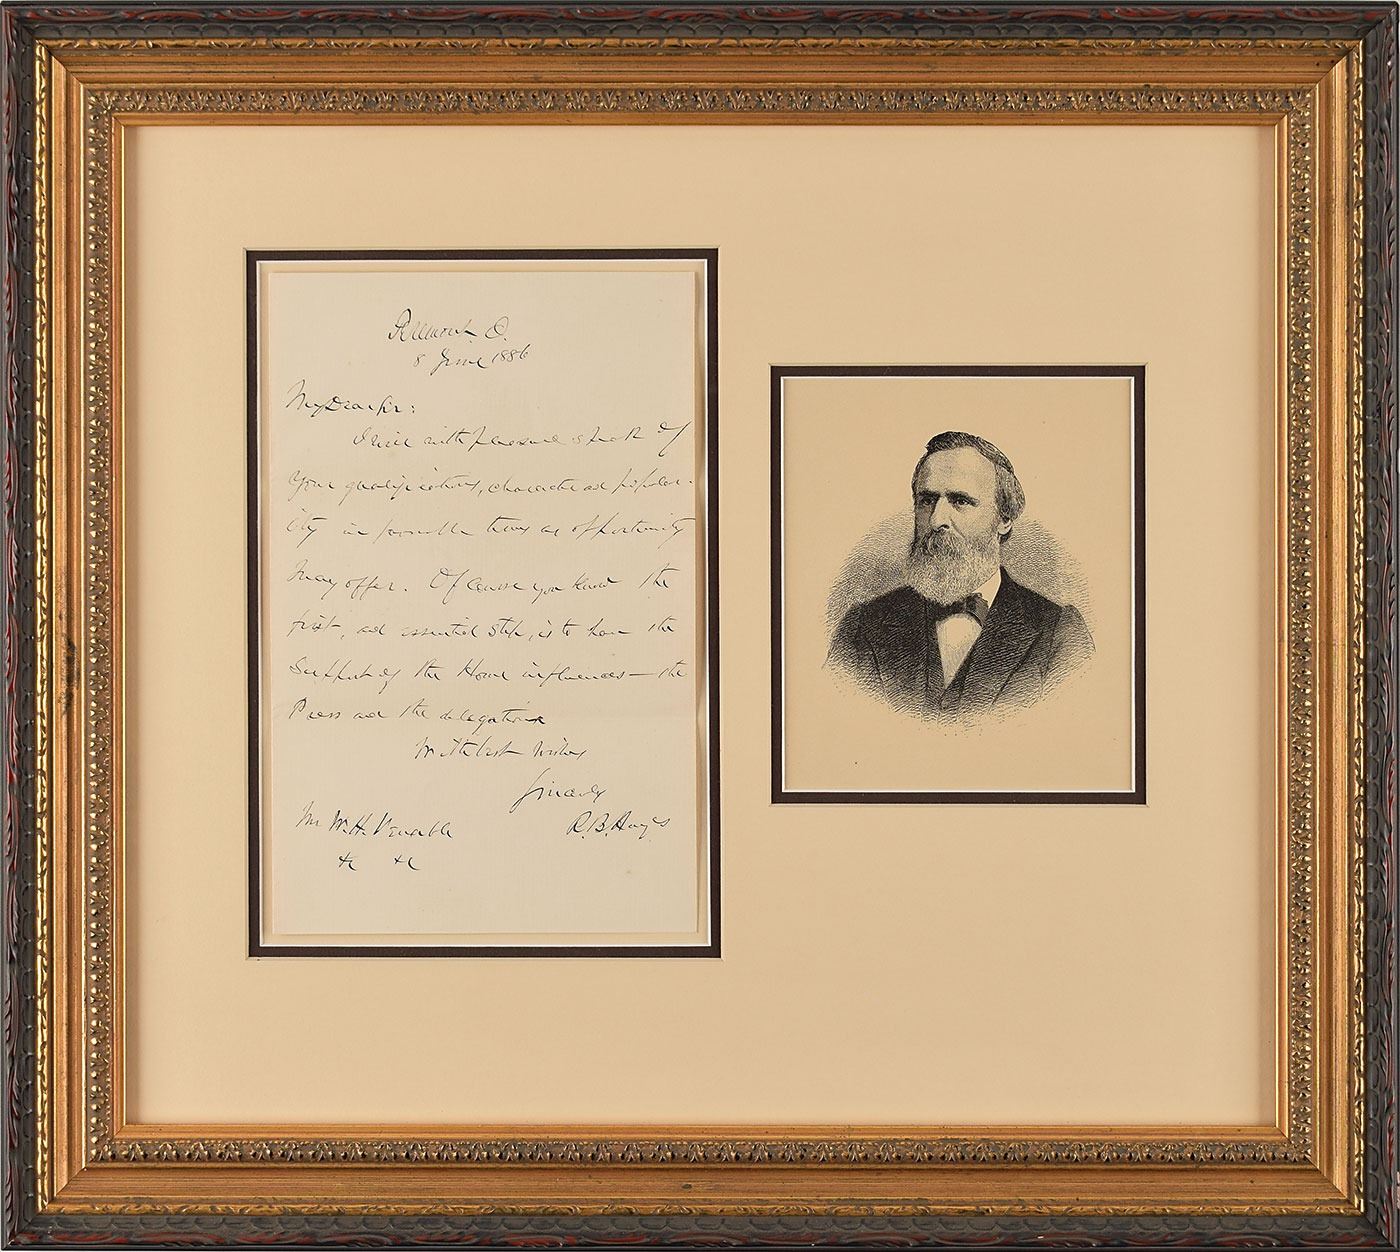 Fremont, O.
8 June 1886
My Dear Sir:
I will with pleasure speak of
your qualifications, character and popular-
ity in possible times as opportunity
may offer. Of course you know the
first, and essential step, is to have the
support of the Home influences — the
Press and the delegation
With best wishes
Sincerely
R. B. Hayes
Mr W. H. Venable
&c &c